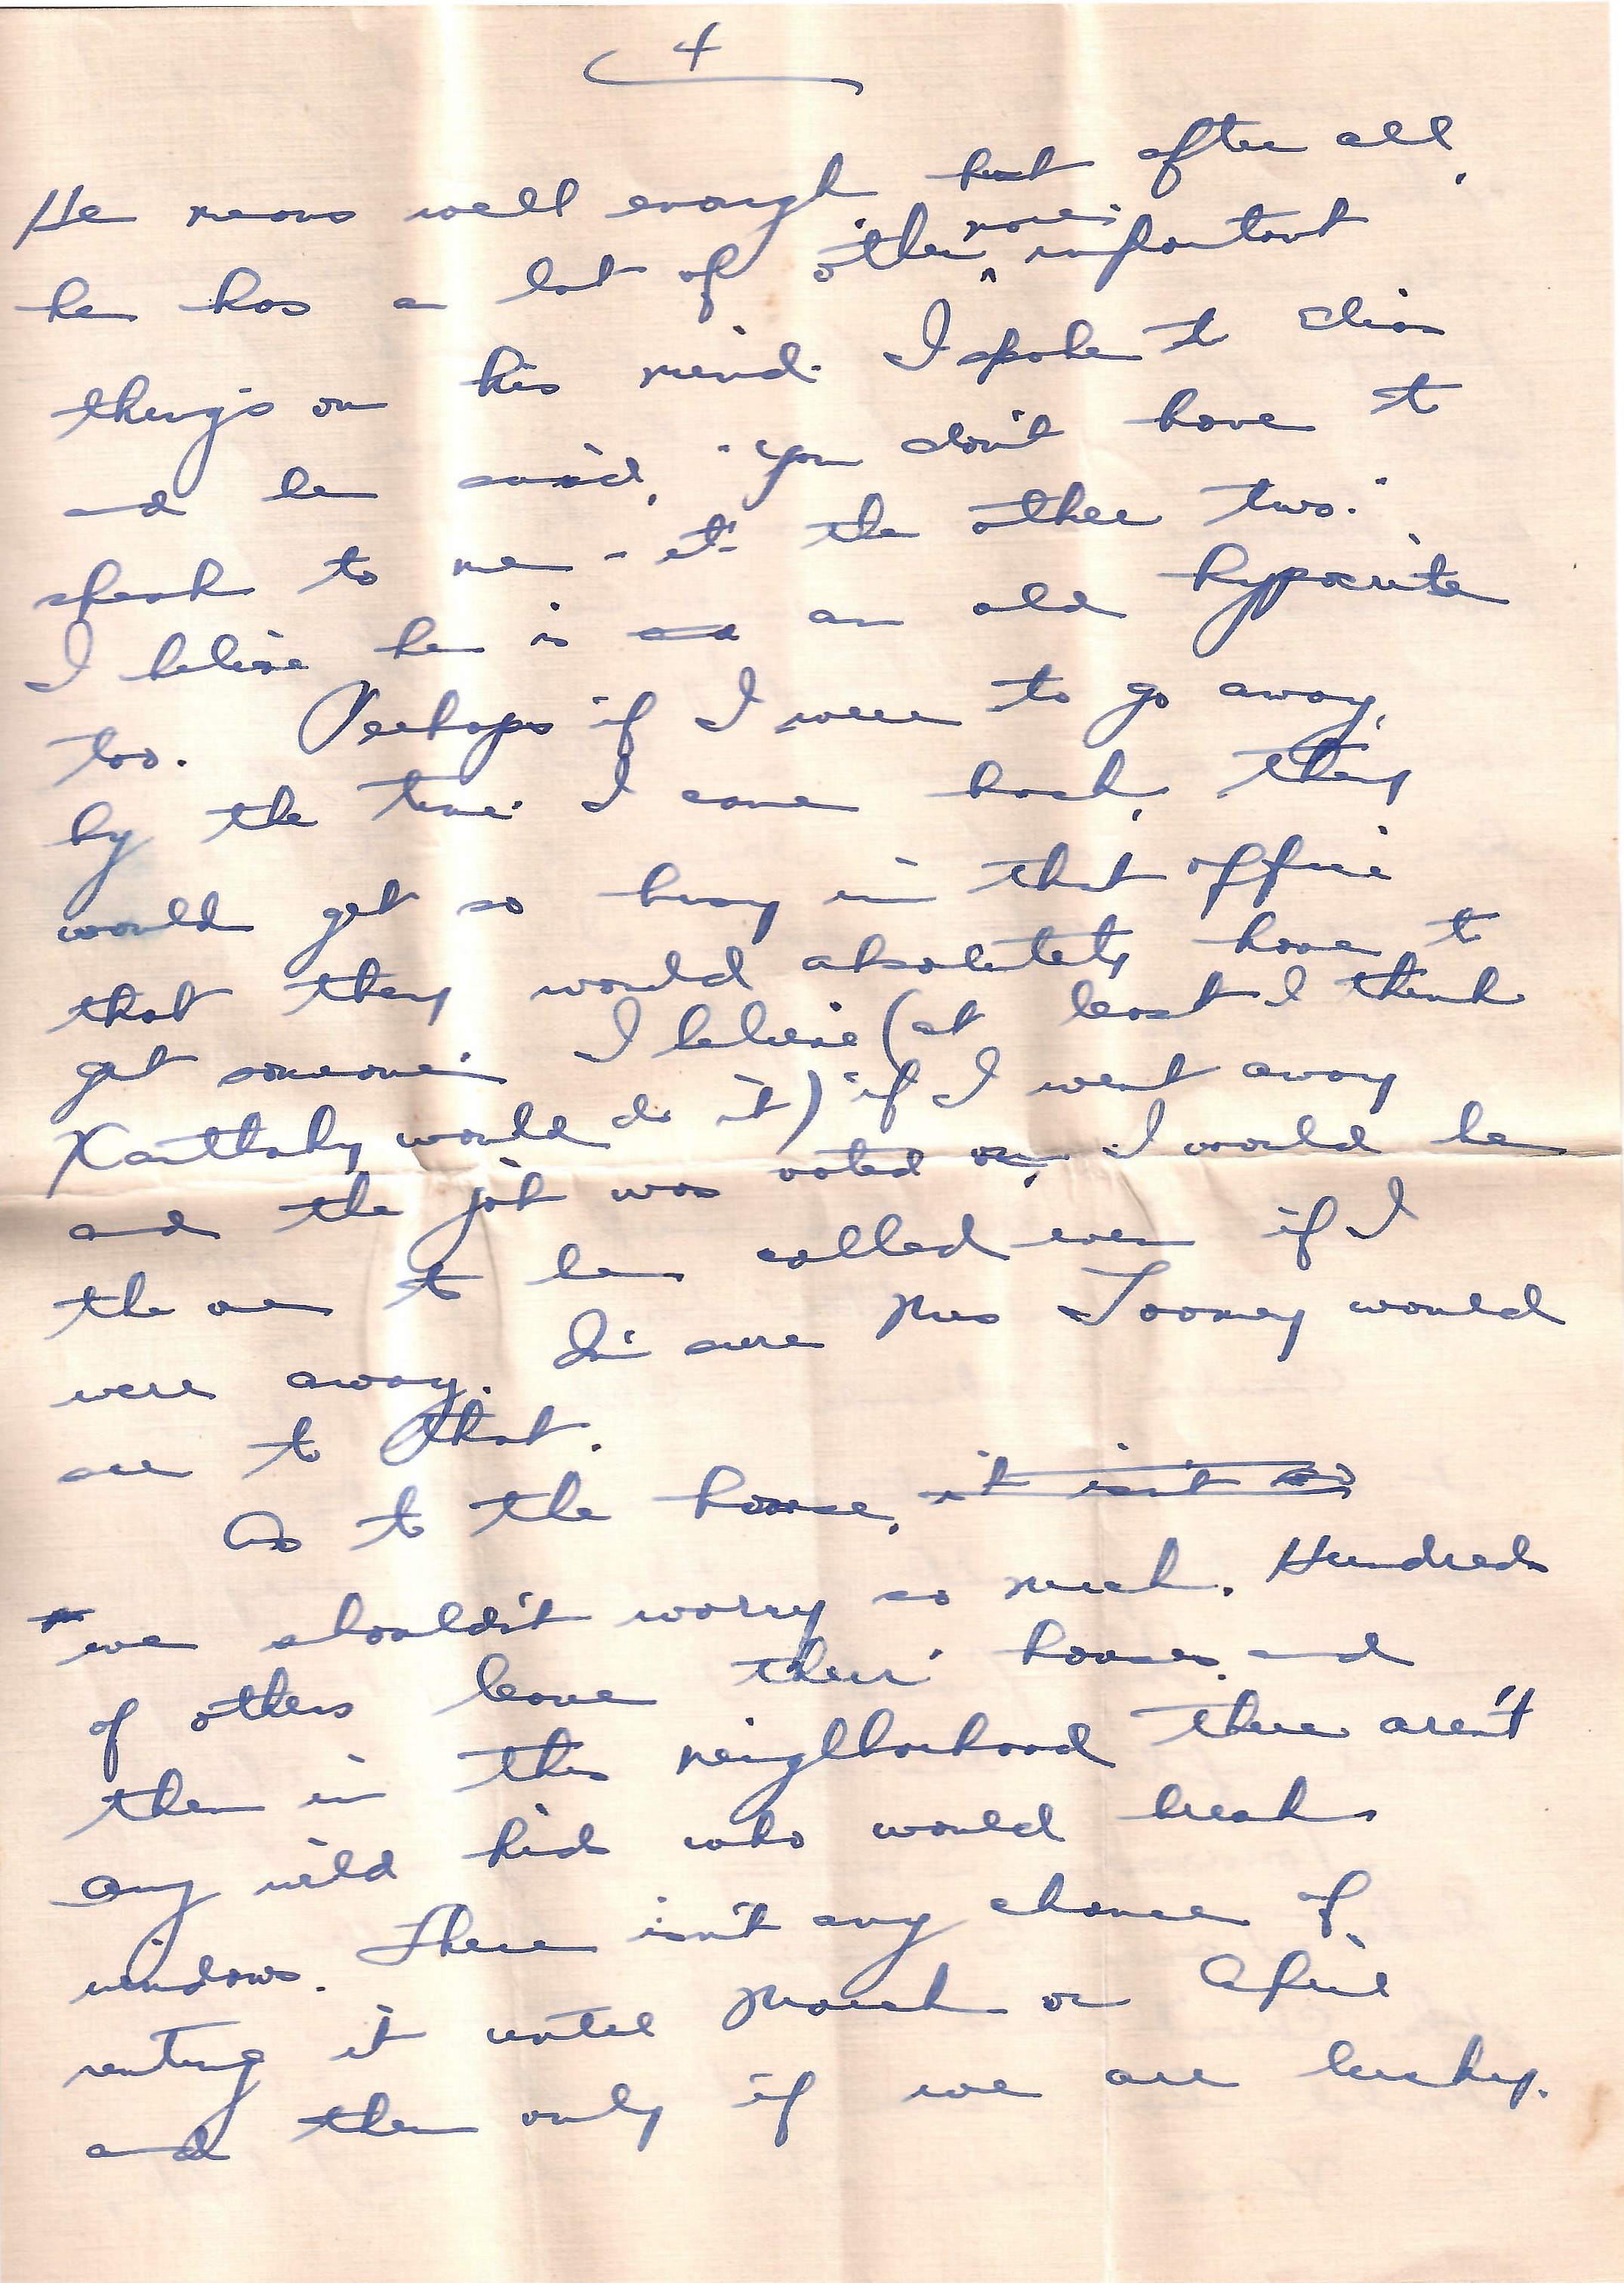 4
He means well enough but after all,
he has a lot of other ^more important
things on his mind. I spoke to
and he said, "you don't have to
speak to me - it's the other two."
I believe he is an old hypocrite
too. Perhaps if I were to go away,
by the time I came back, they
would get so busy in that office
that they would absolutely have to
get someone. I believe (at least I think
would do it) if I went away
and the job was voted on, I would be
the one to be called even if I
were away. I'm sure Mrs Toomey would
see to that.
As to the house, it isn't so
we shouldn't worry so much. Hundreds
of others leave their houses and
then in this neighborhood there aren't
any wild kids who would break
windows. There isn't any chance of
renting it until March or April
and then only if we are lucky.